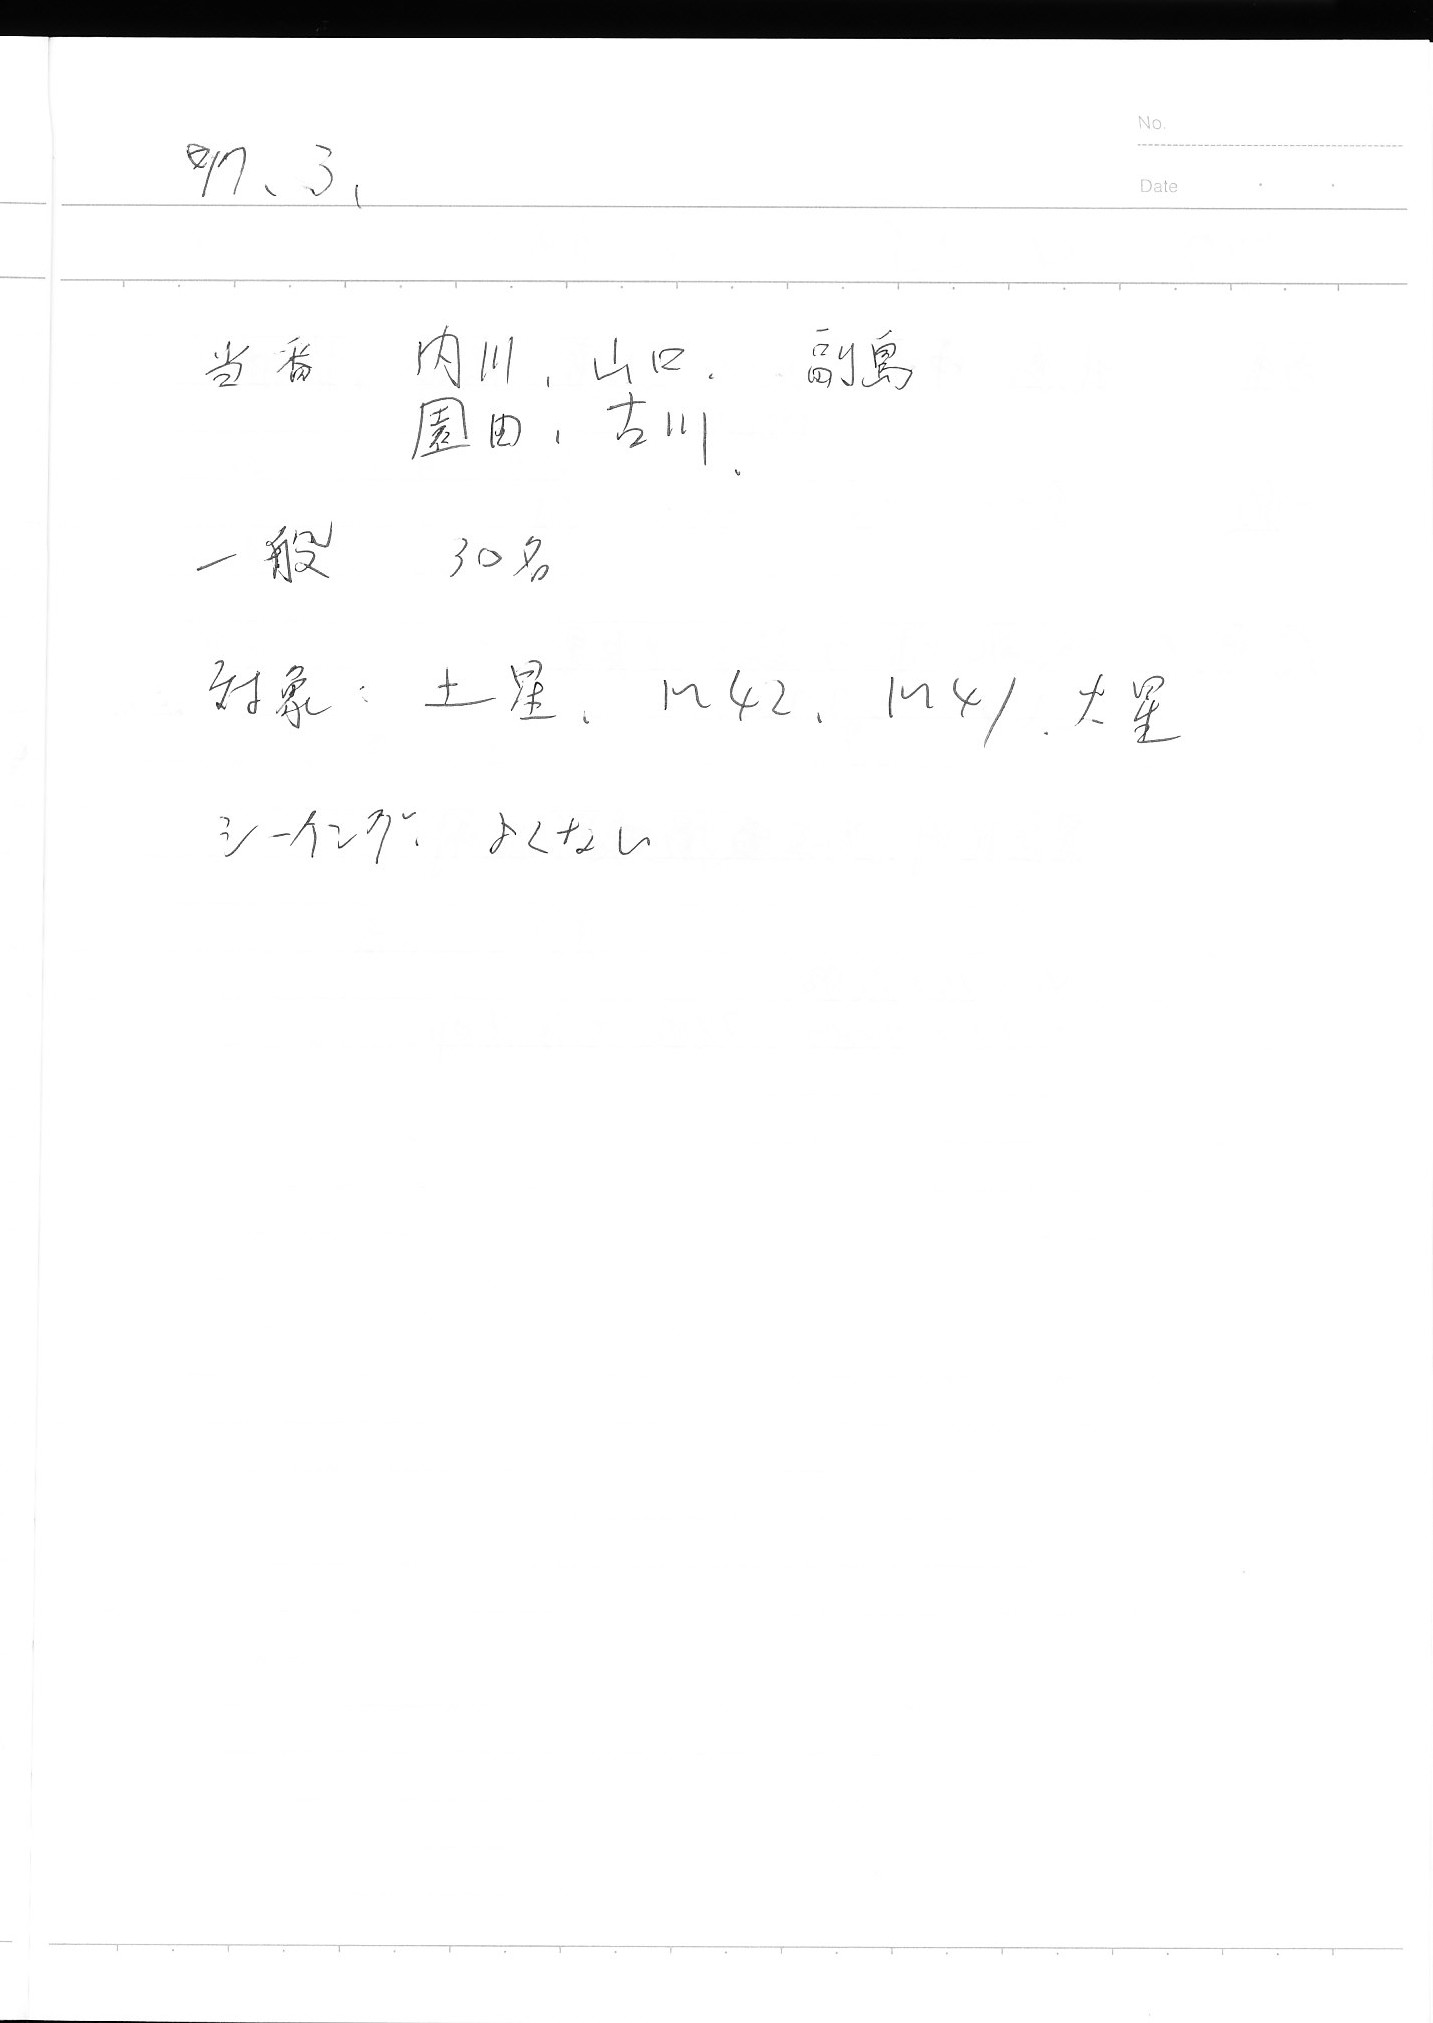 No.
Date
3、
当番 内川、山口、副島
園田、古川、
一般 30名
対象：土星、M42、M41、火星
シーイング、よくない